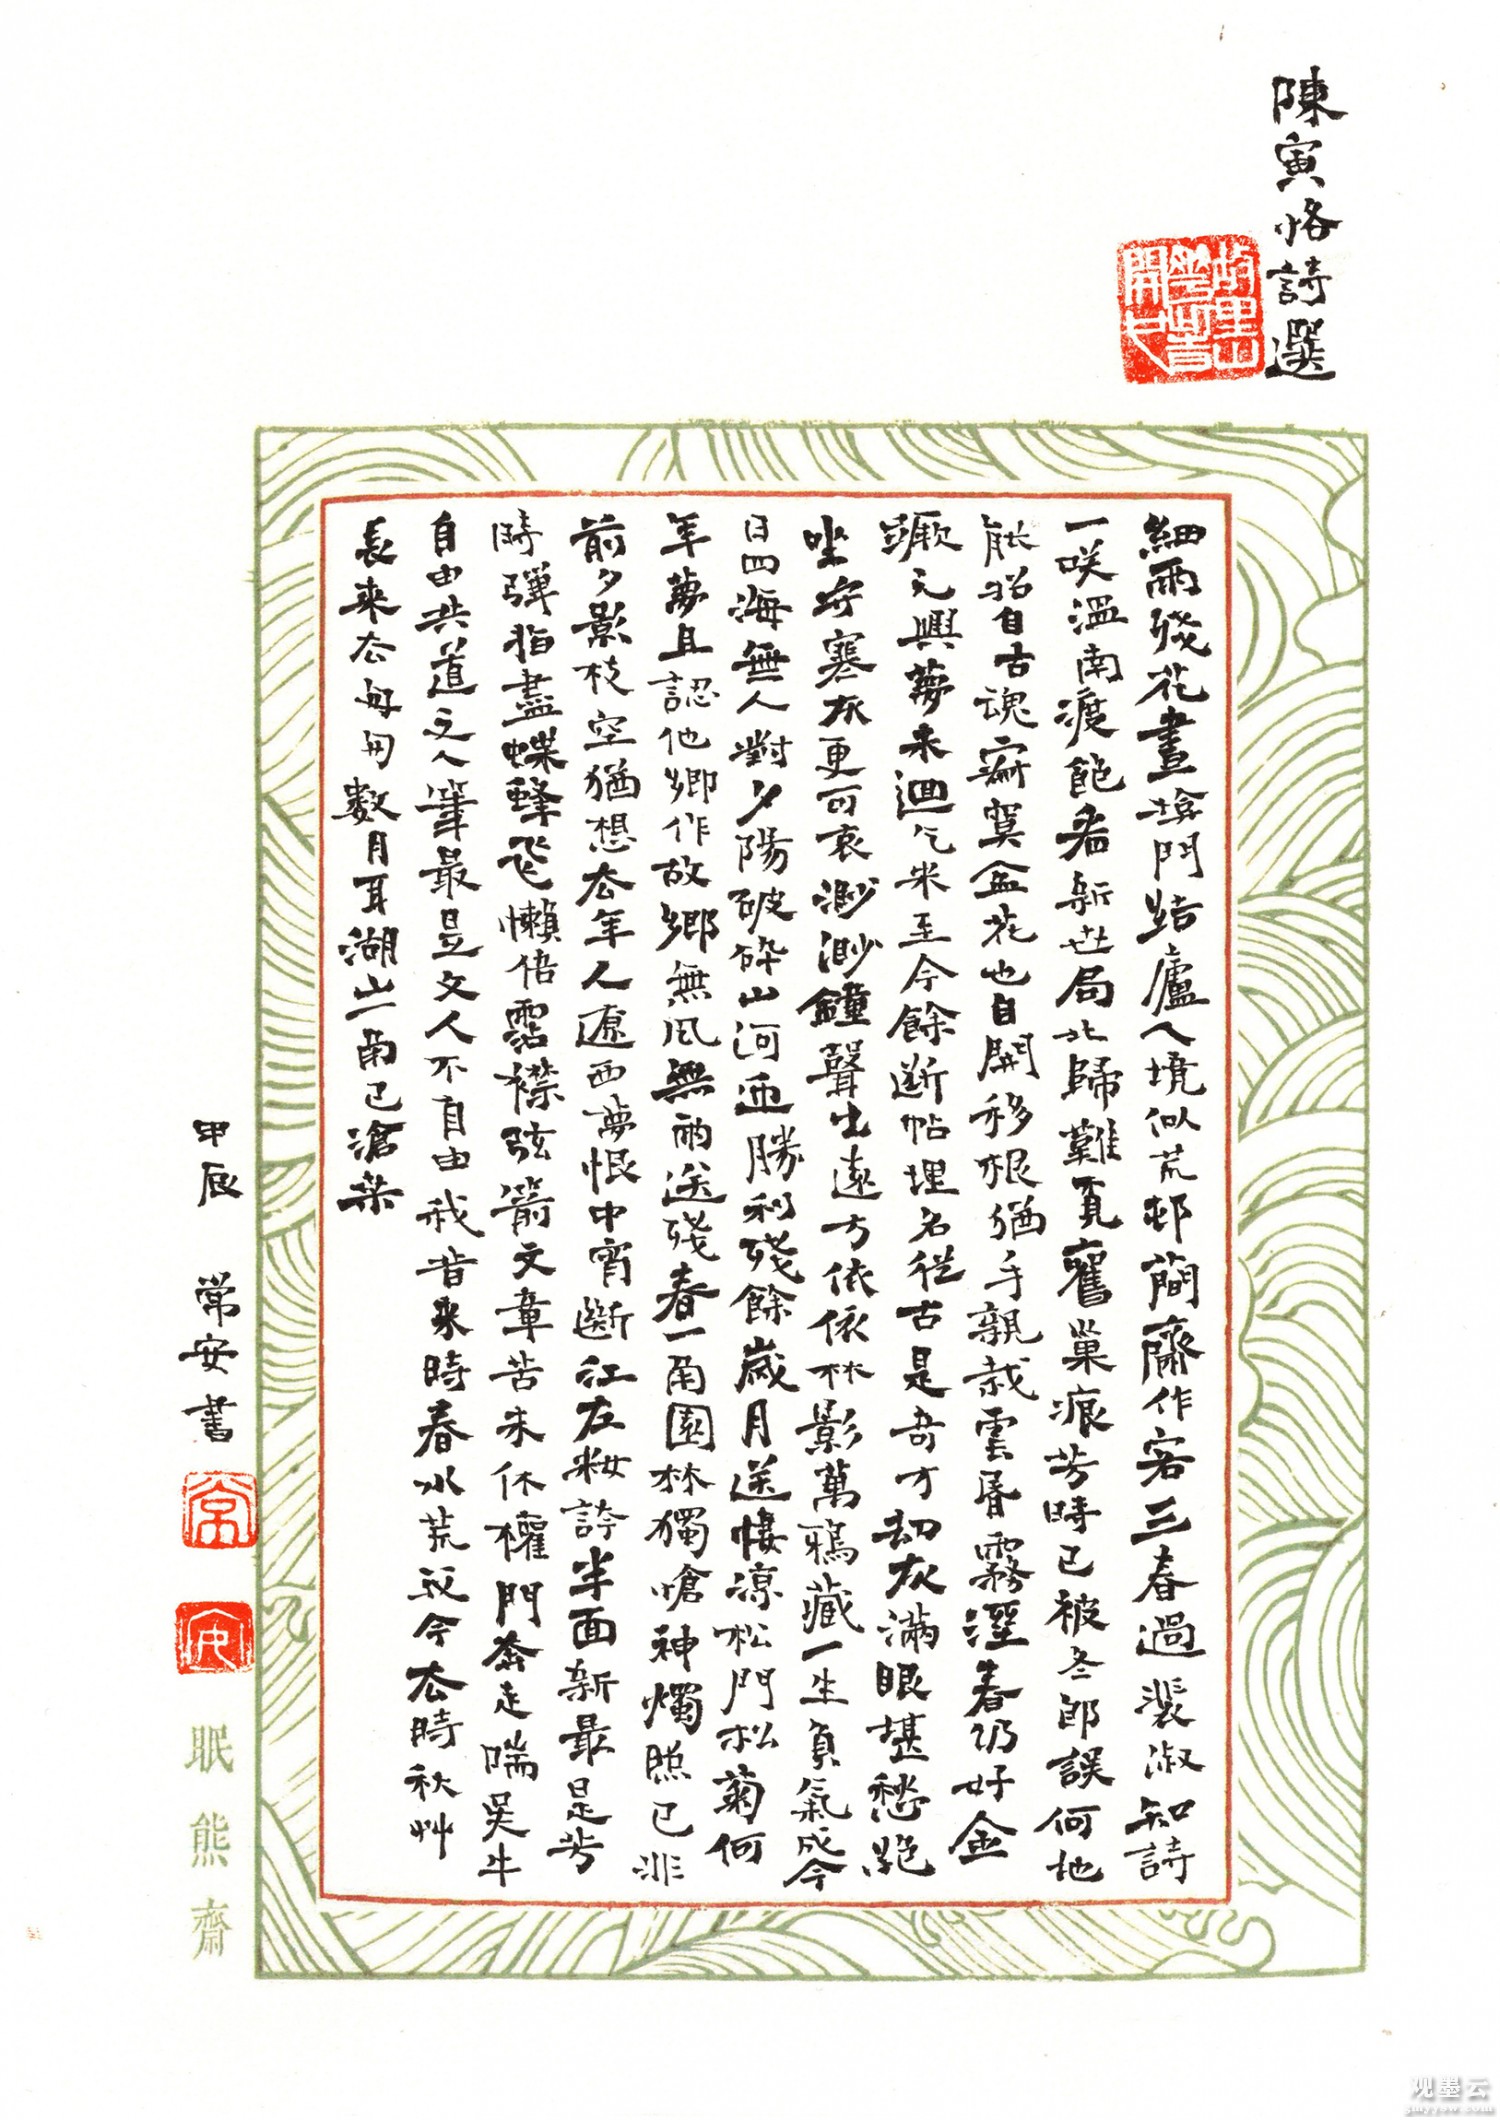 陳寅恪詩選
細雨殘花晝掩門結廬人境似荒邨簡齋作客三春過裴淑知詩
一咲溫南渡飽看新世局北歸難覓舊巢痕芳時已被冬郎誤何地
能招自古魂寂寞盆花也自開移根猶手親栽雲昏霧溼春仍好金
蹶元興夢未迴乞米至今餘断帖埋名從古是奇才劫灰滿眼堪愁絕
坐守寒灰更可哀渺渺鐘聲出遠方依依林影萬鴉藏一生負氣成今
日四海無人對夕陽破碎山河迎勝利殘餘歲月送悽涼松門松菊何
年夢且認他鄉作故鄉無風無雨送殘春一角園林獨愴神燭照已非
前夕影枝空猶想去年人遼西夢恨中宵斷江左妝誇半面新最是芳
時彈指盡蝶蜂飛懶倍霑襟弦箭文章苦未休權門奔走喘吳牛
自由共道文人筆最是文人不自由我昔來時春水荒我今去時秋艸
長來去匆匆數月耳湖山一角已滄桑
甲辰 常安書
常
安
眠熊齋
观墨云